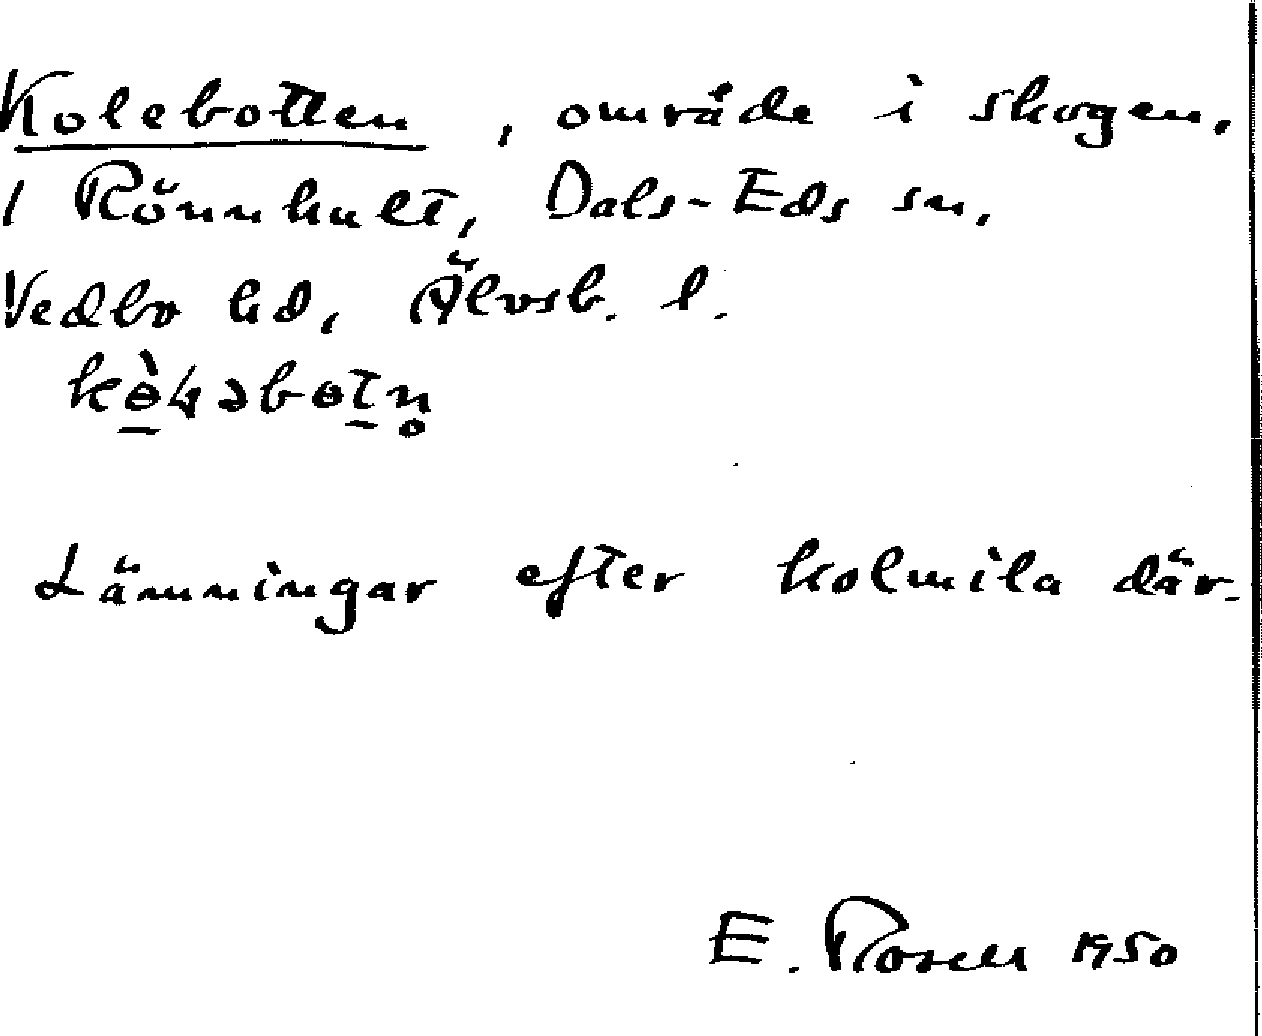 Kolebotten, område i skogen,
1 Rönnhult, Dals-Eds sn,
Vedbo hd, Älvsb. l.
Lämningar efter kolmila där.
E. Rosell 1950